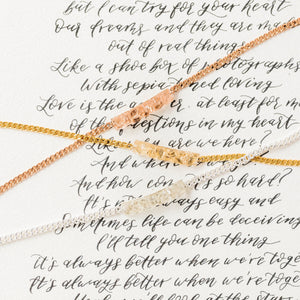 but I can try for your heart
Our dreams and they are ma
out of real thing
Like a shoe box of photographs
With sepiatoned loving
Love is the at least for m
of the questions in my heart
we are here?
And where
And how so hard?
It's always easy and
Sometimes life can be deceiving
I'll tell you one thing
It's always better when we're toge
It's always better when we're togeth
look at the star